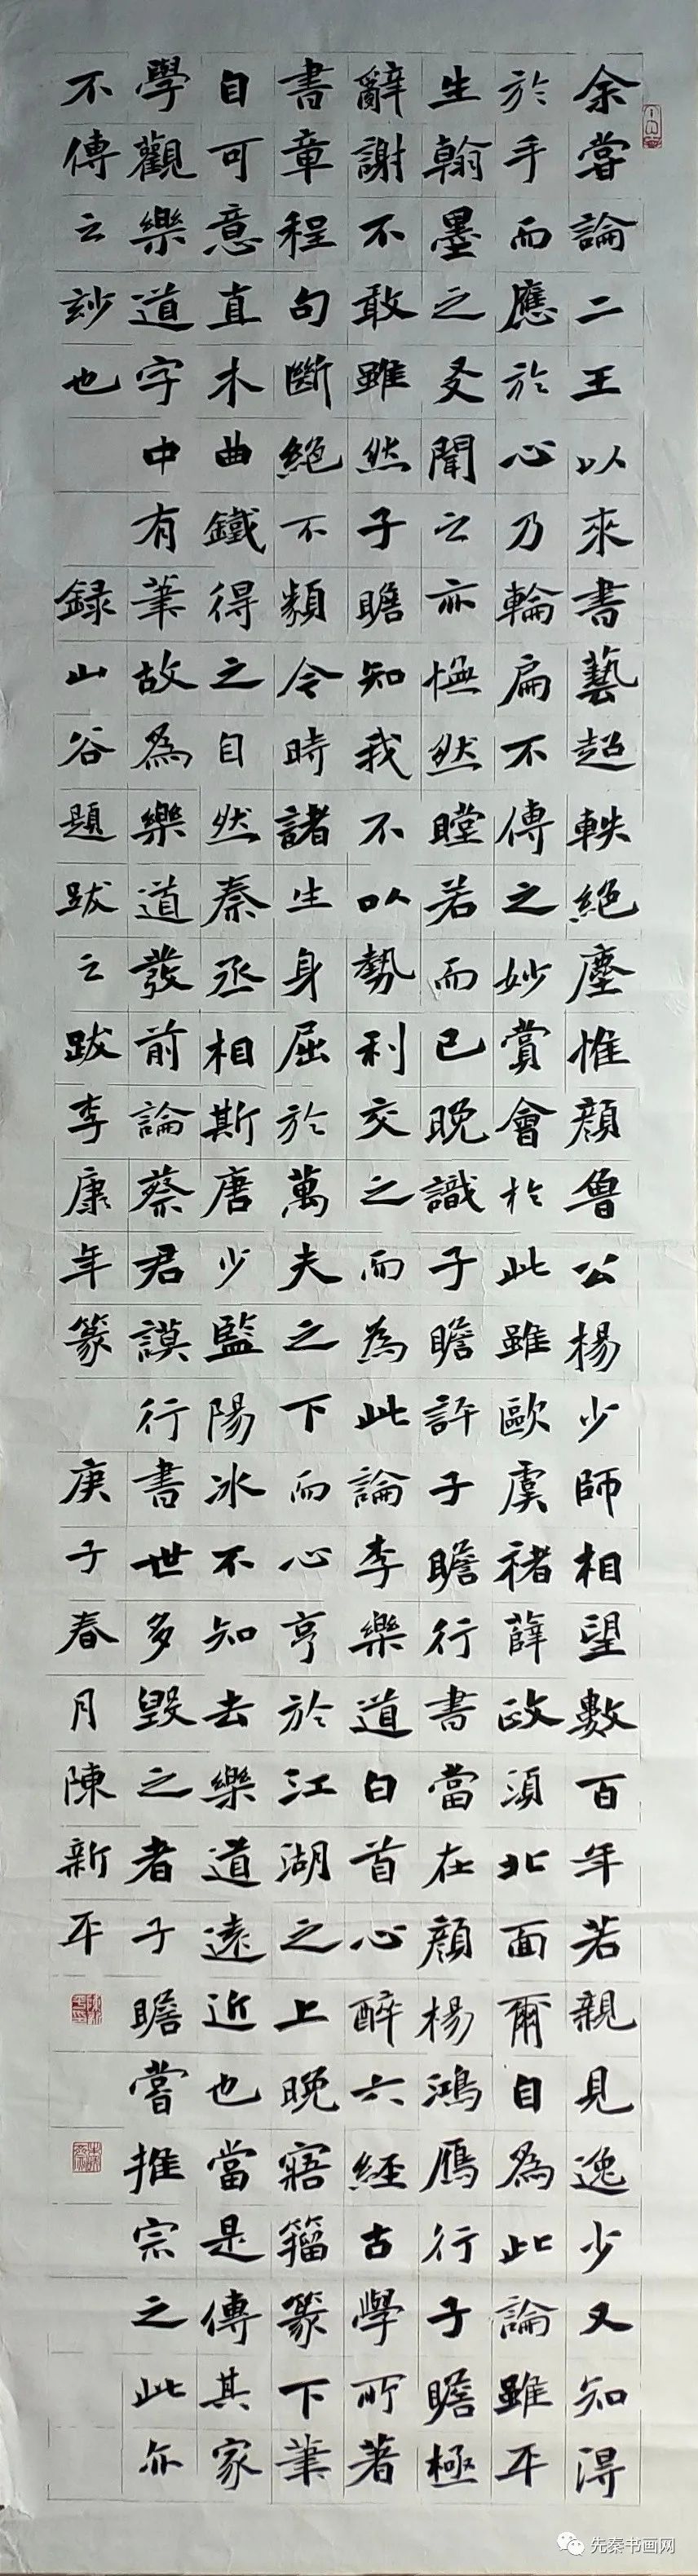 余嘗論二王以來書藝超軼絕塵惟顏魯公楊少師相望數百年若親見逸少又知得
於手而應於心乃輪扁不傳之妙賞會於此雖歐虞褚薛政須北面爾自為此論雖平
生翰墨之友聞之亦憮然瞠若而已晚識子瞻評子瞻行書當在顏楊鴻鴈行子瞻極
辭謝不敢雖然子瞻知我不以勢利交之而為此論李樂道白首心醉六經古學所著
書章程句斷絕不類今時諸生身屈於萬夫之下而心亨於江湖之上晚寤籀篆下筆
自可意直木曲鐵得之自然秦丞相斯唐少監陽冰不知去樂道遠近也當是傳其家
學觀樂道字中有筆故為樂道發前論蔡君謨行書世多毀之者子瞻嘗推宗之此亦
不傳之玅也 録山谷題跋之跋李康年篆 庚子春月陳新平
先秦书画网